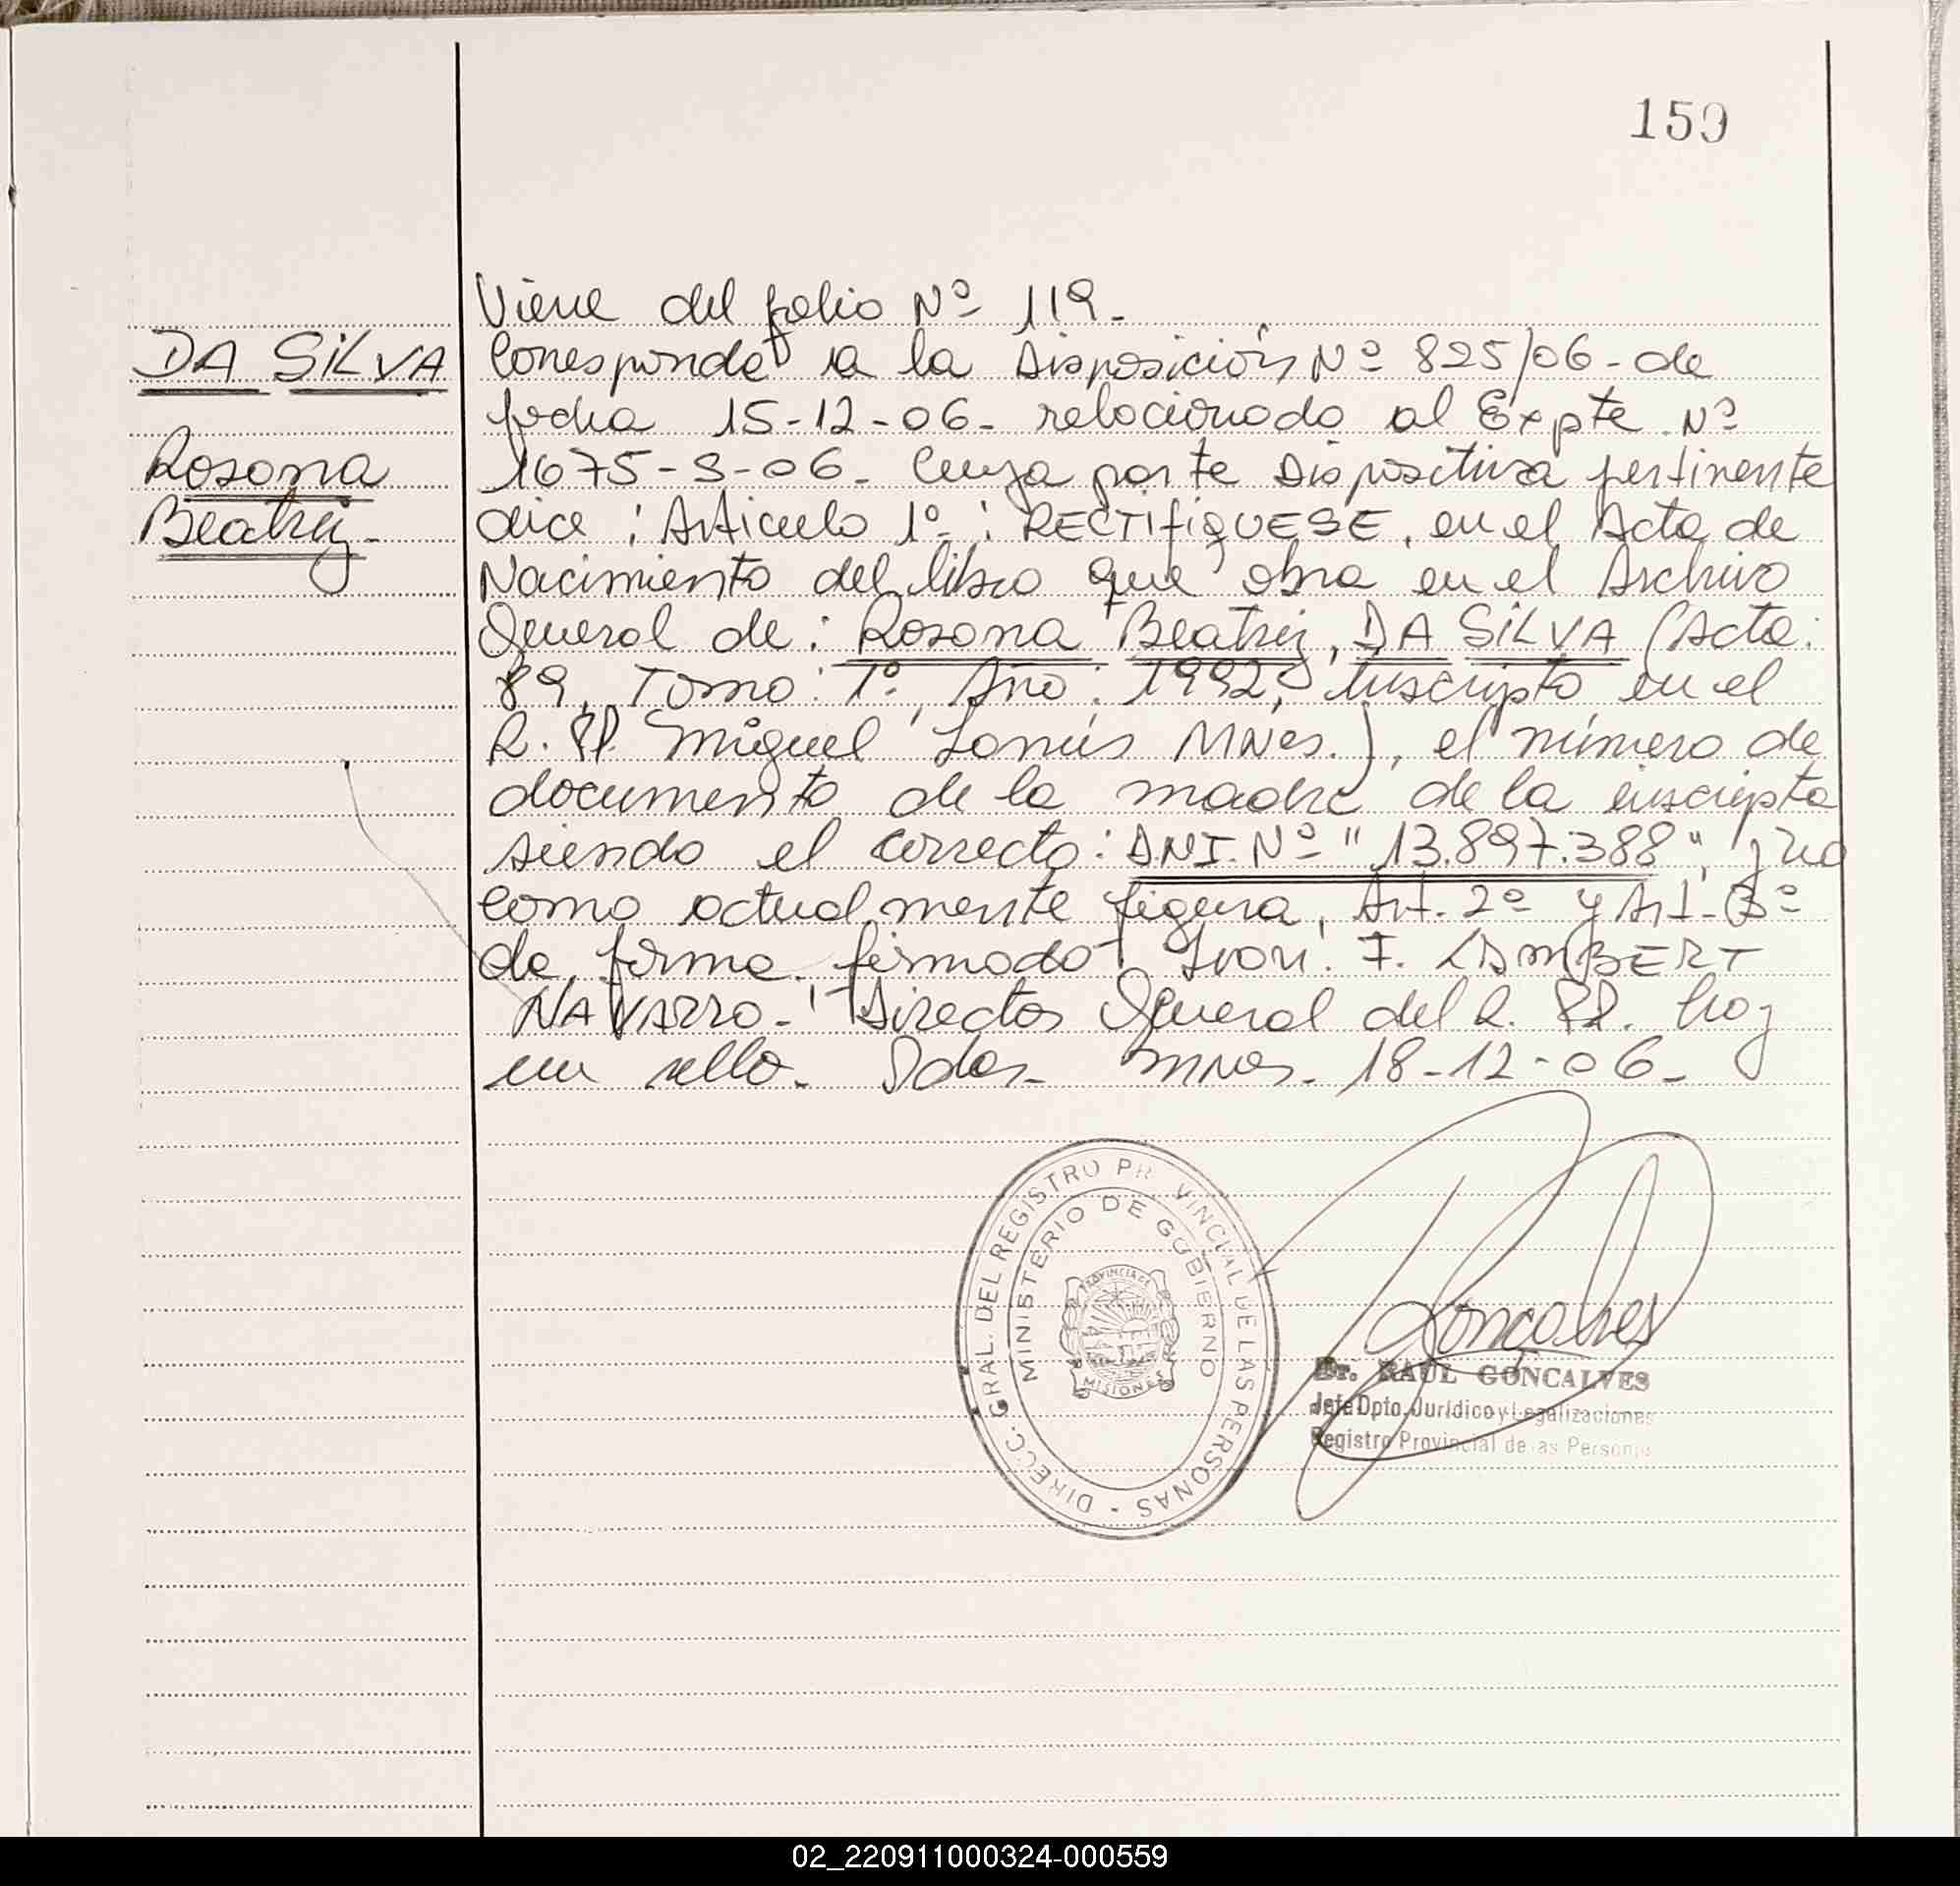 159
Viene del folio Nº 119.
DA SILVA
Corresponde a la Disposición Nº 825/06 - de
fecha 15-12-06. relacionado al Expte. Nº
Rosana
1675-S-06. Cuya parte Dispositiva pertinente
Beatriz.
dice: Articulo 1º: RECTIFIQUESE, en el Acta de
Nacimiento del libro que obra en el Archivo
General de: Rosana Beatriz, DA SILVA (Acta:
89, Tomo: 1º, Año: 1992, Inscripto en el
R. PP. Miguel Lanús MNes.), el número de
documento de la madre de la inscripta
siendo el correcto: DNI. Nº "13.897.388", y no
como actualmente figura, Art. 2º y Art. 3º
de forma. firmado Ivon. F. LAMBERT
NAVARRO - Director General del R. PP. hay
un sello. Pdas. Mnes. 18-12-06.
DIRECC. GRAL. DEL REGISTRO PR VINCIAL DE LAS PERSONAS -
MINISTERIO DE GOBIERNO
PROVINCIA DE
MISIONES
Goncalves
Dr. RAUL GONCALVES
Jefe Dpto. Jurídico y Legalizaciones
Registro Provincial de as Personas
02_220911000324-000559